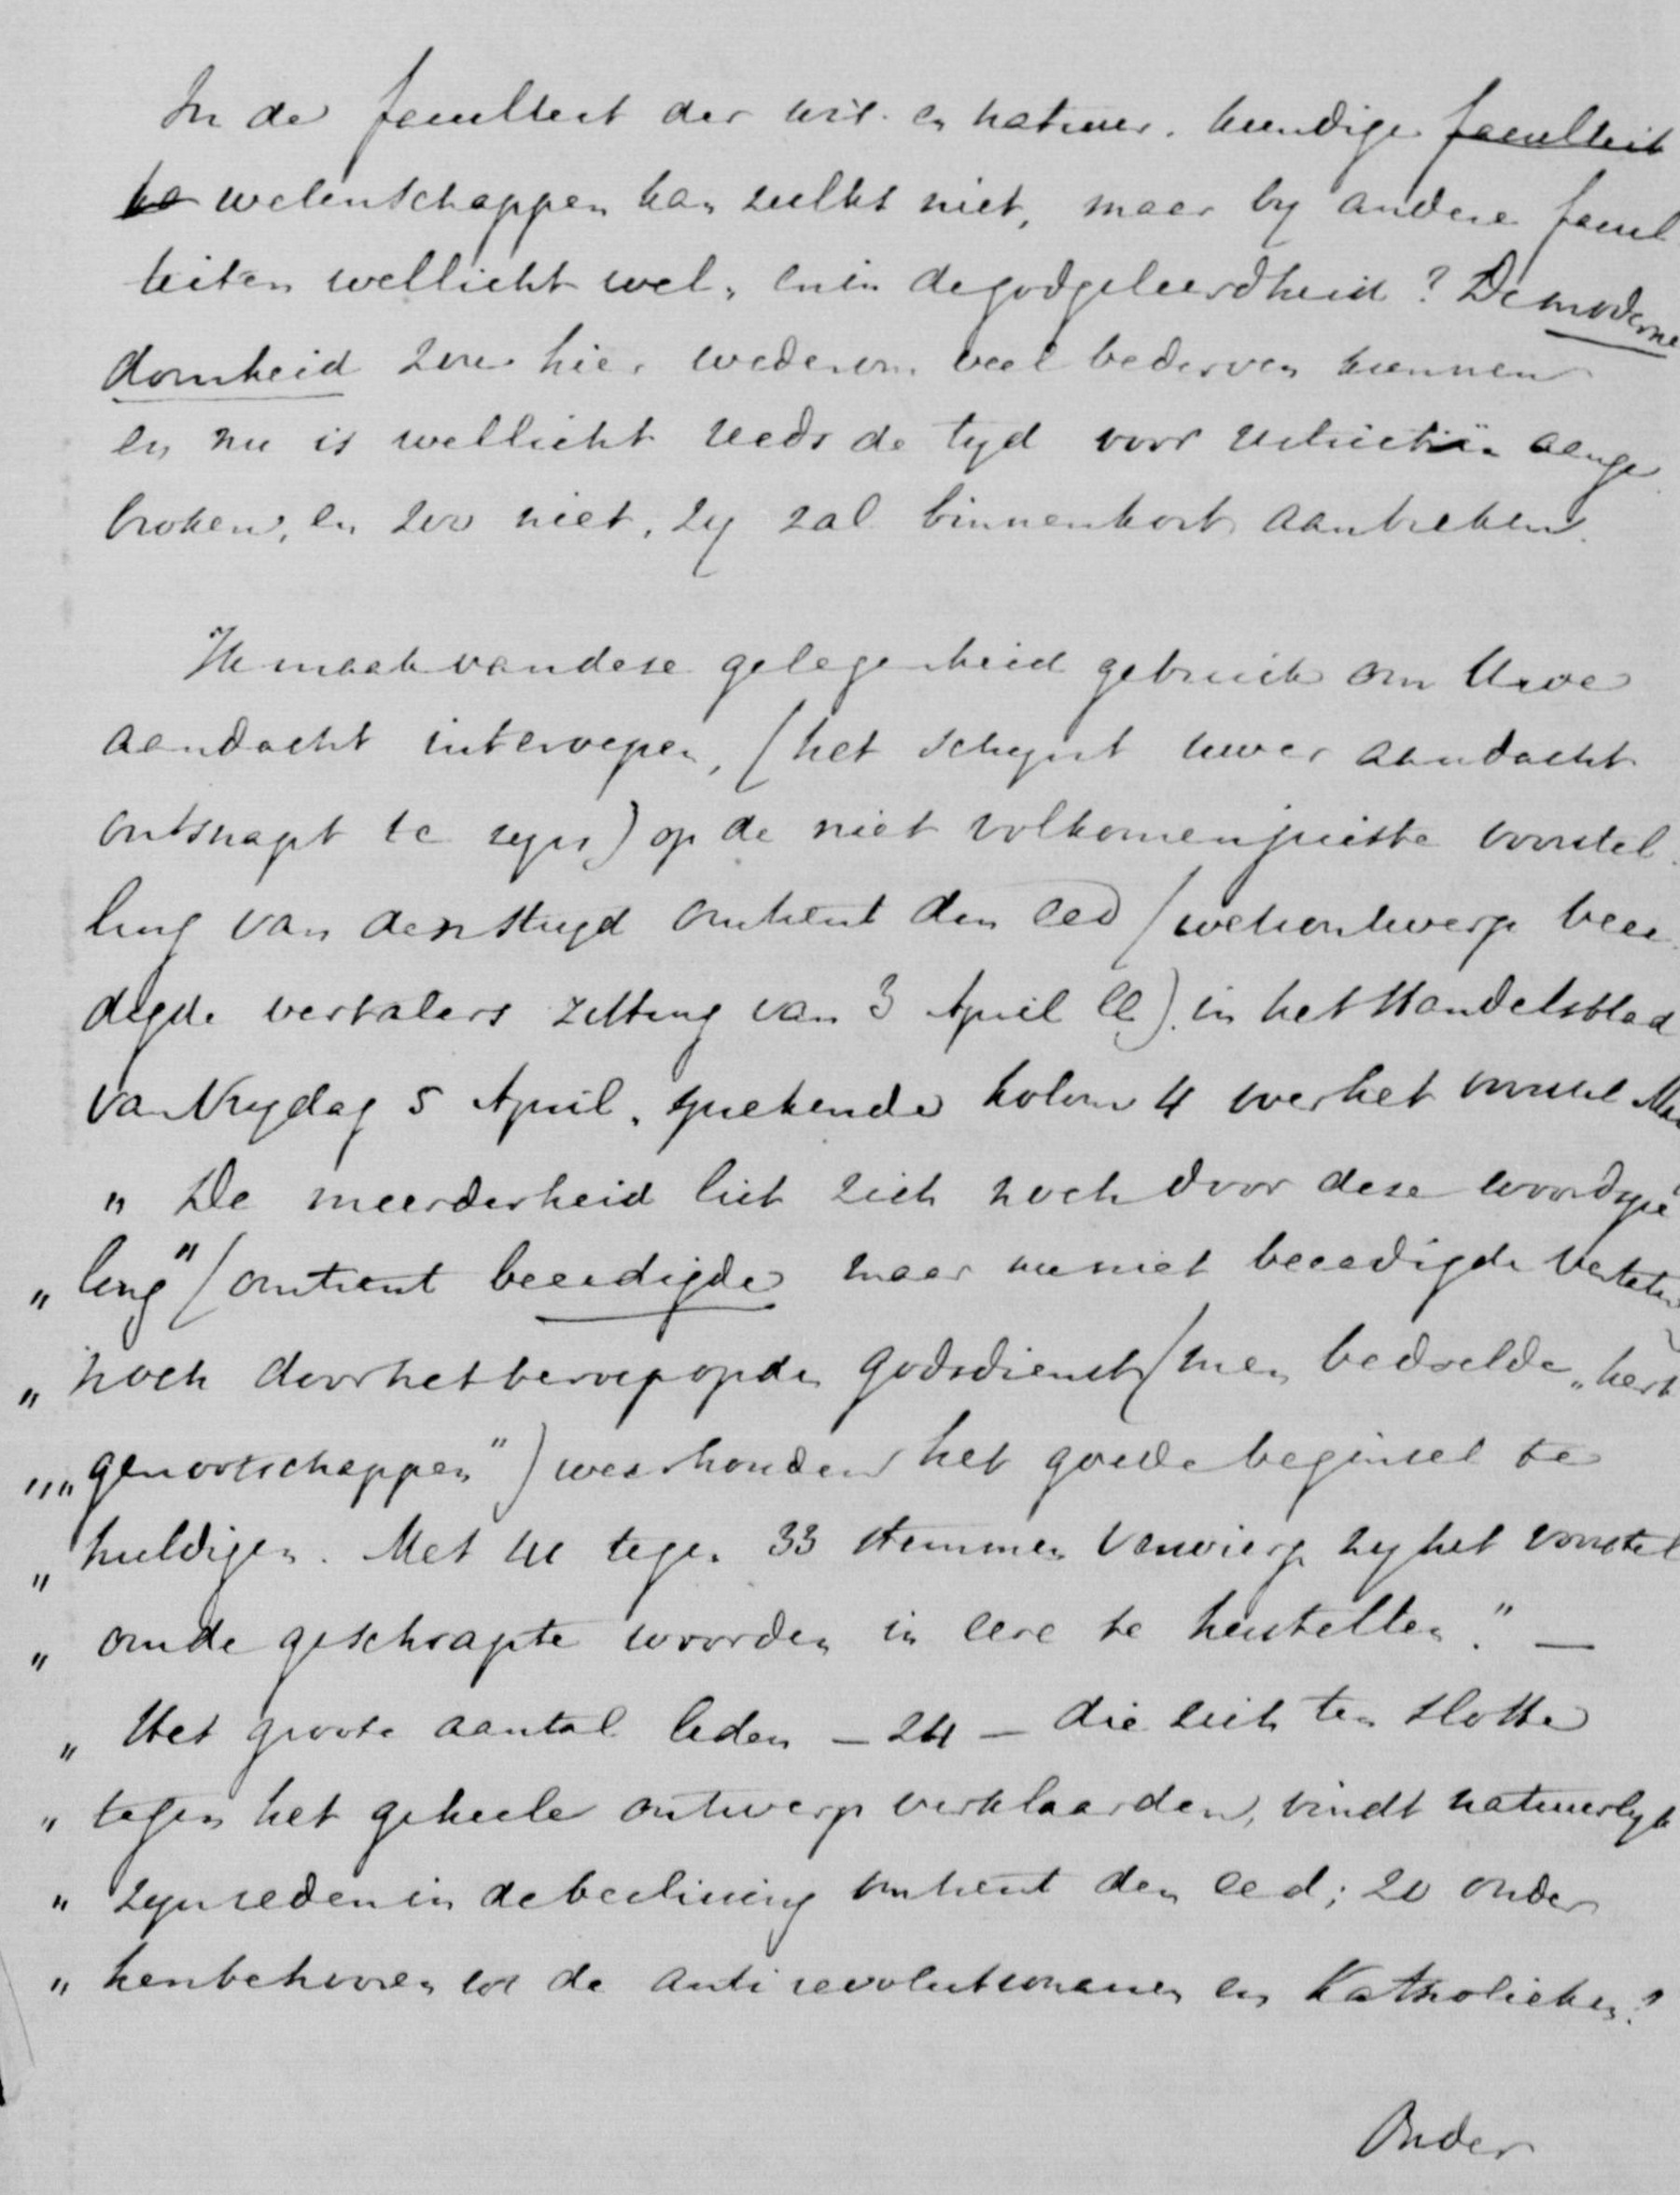 In de faculteit der wis- en natuur- kundige faculteit
ka wetenschappen kan zulks niet, maar by andere facul
teiten wellicht wel, en in de godgeleerdheid? De moderne
domheid zou hier wederom veel bederven kunnen
en nu is wellicht reeds de tyd voor aange
broken, en zoo niet, zy zal binnenkort aanbreken.
Ik maak van deze gelegenheid gebruik om Uwe
aandacht interoepen, (het schynt uwer aandacht
ontsnapt te zyn) op de niet volkomen juiste voorstel
ling van den strijd omtrent den eed (wetsontwerp beee
digde vertalers zitting van 3 April ll). in het Handelsblad
van Vrydag 5 April, sprekende kolom 4 over het voorstel
„ De meerderheid liet zich noch door deze woordspe
„ ling" (omtrent beeedigde maar nu niet beeedigde
„ noch door het beroep op de godsdienst (men bedoelde „kerk
„„genootschappen") weerhouden het goede beginsel te
„ huldigen. Met 41 tegen 33 stemmen verwierp zy het voorstel
„ om de geschrapte woorden in eere te herstellen." —
„ Het groote aantal leden — 24 — die zich ten slotte
„ tegen het geheele ontwerp verklaarden, vindt natuurlyk
„ zyn reden in de beslissing omtrent den eed; 20 onder
„ hen behooren tot de antirevolutionairen en Katholieken?
Onder